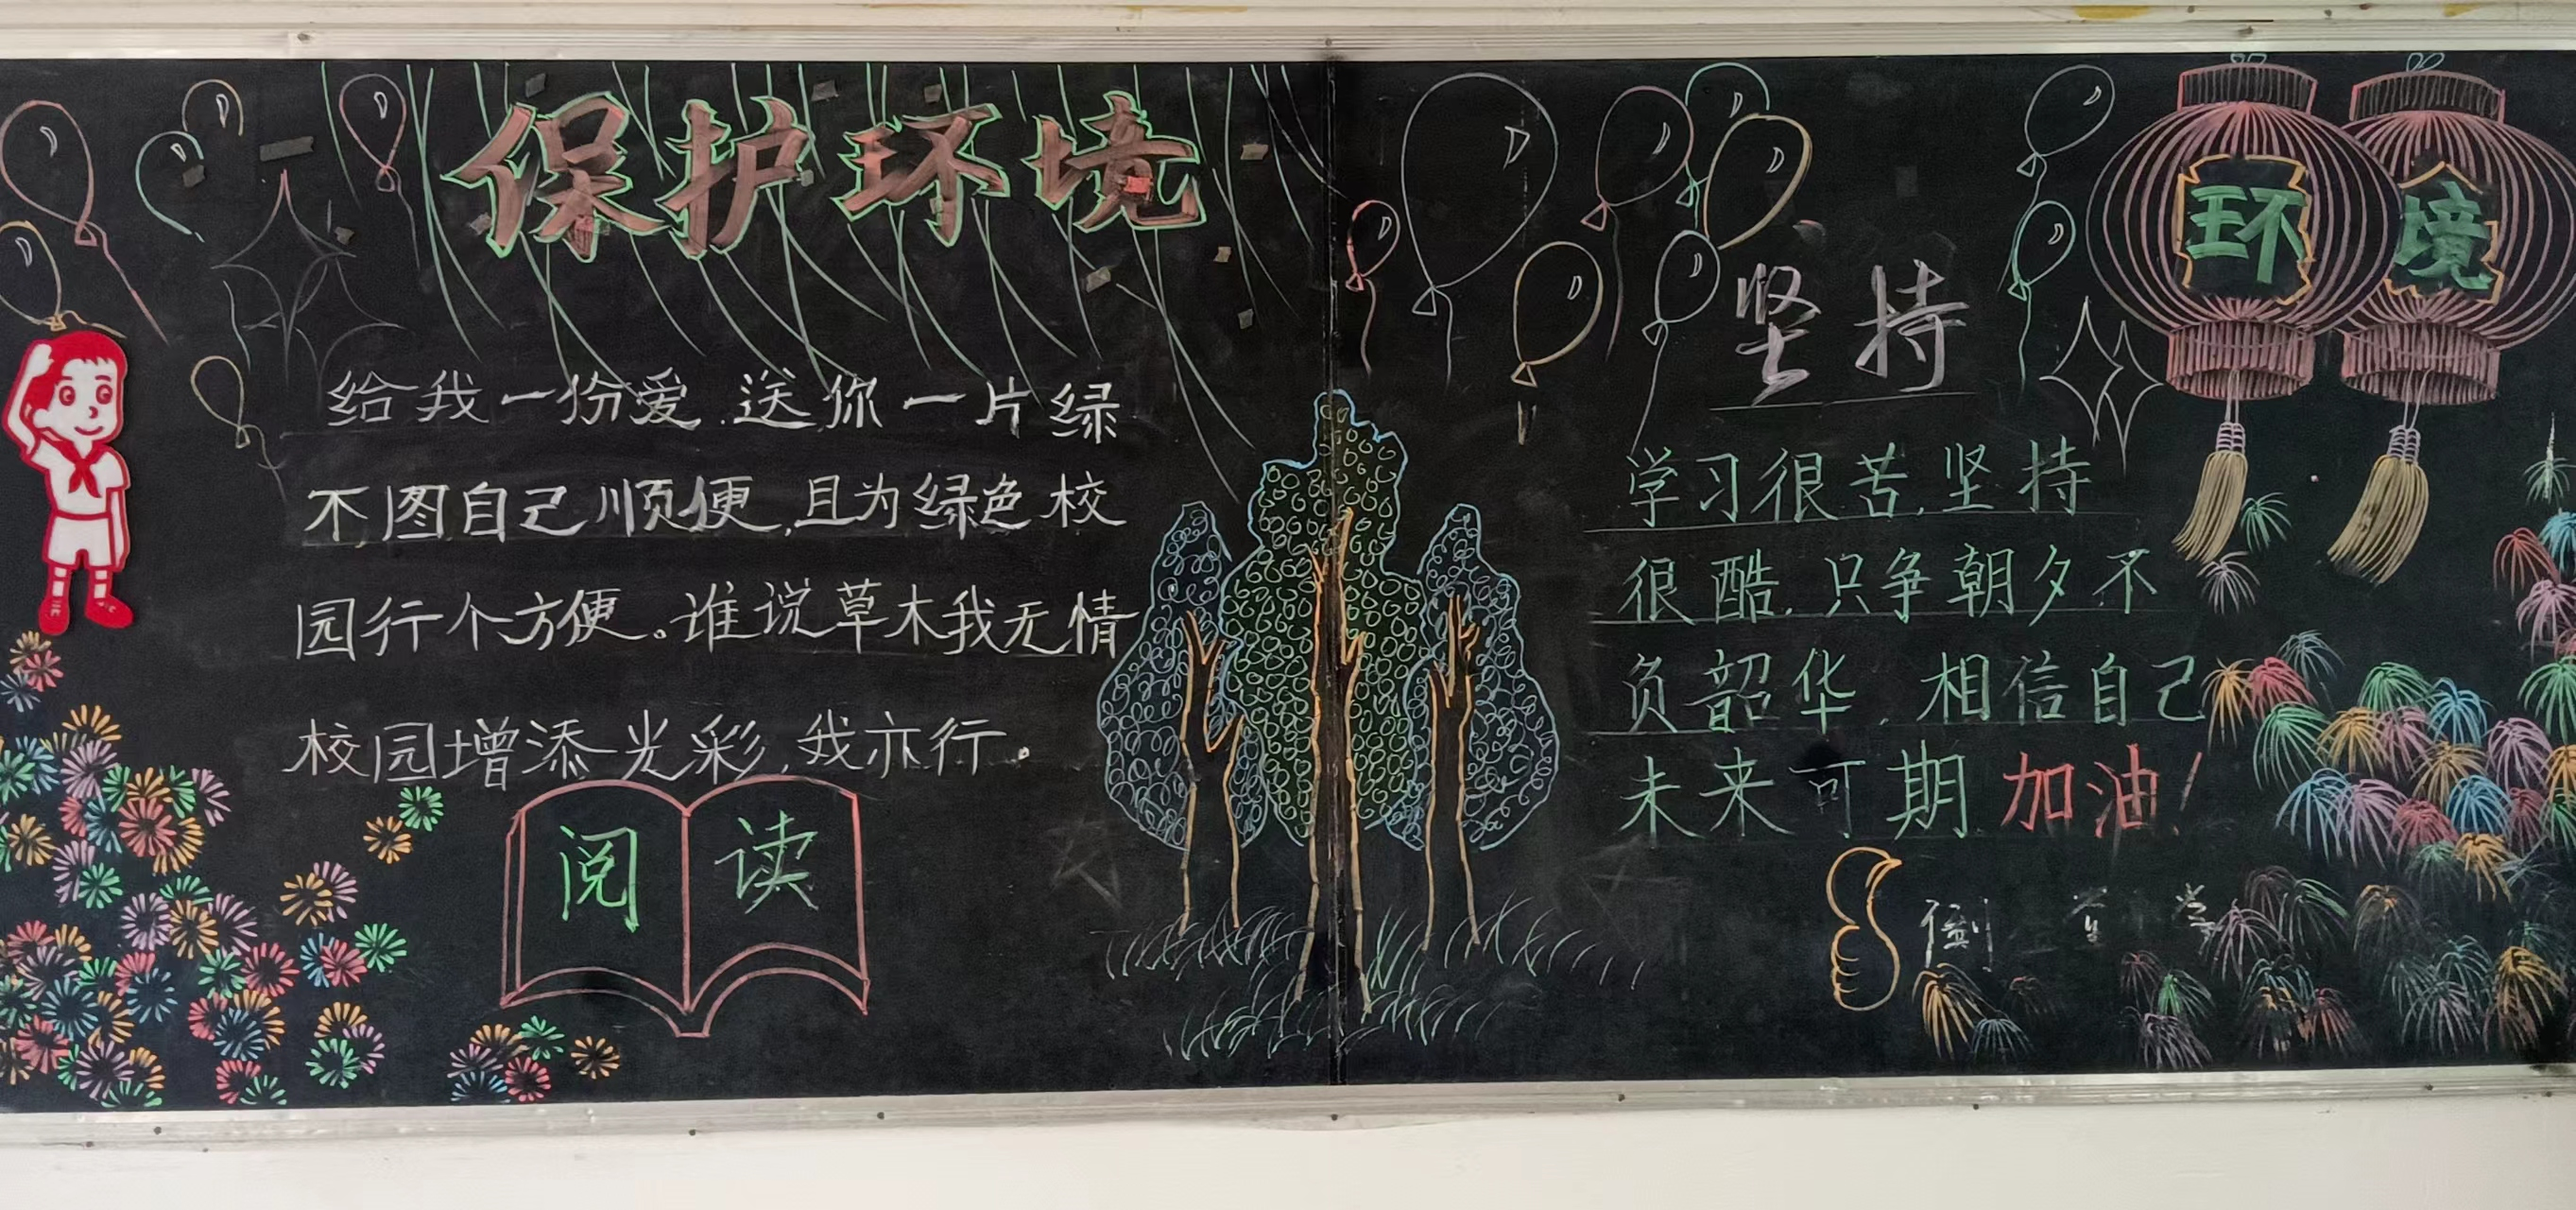 保护环境
给我一份爱.送你一片绿
不图自己顺便,且为绿色校
园行个方便。谁说草木我无情
校园增添光彩,我亦行。
阅读
坚持
学习很苦,坚持
很酷.只争朝夕不
负韶华,相信自己
未来可期加油!
环境